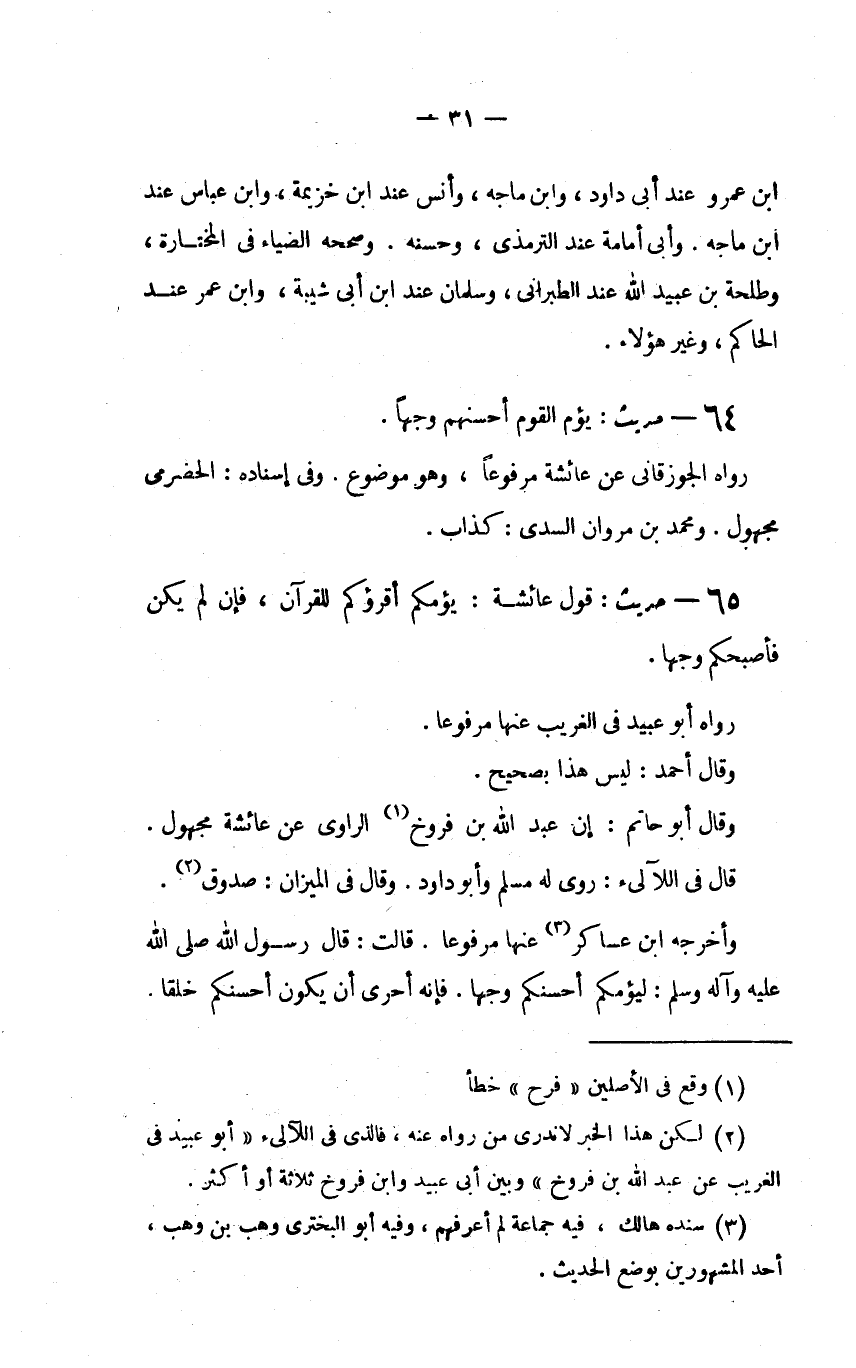 — ٣١ —
ابن عمرو عند أبى داود ، وابن ماجه ، وأنس عند ابن خزيمة ، وابن عباس عند
ابن ماجه . وأبى أمامة عند الترمذى ، وحسنه . وصححه الضياء فى المختـارة ،
وطلحة بن عبيد الله عند الطبرانى ، وسلمان عند ابن أبى شيبة ، وابن عمر عنـد
الحاكم ، وغير هؤلاء .
٦٤ — حديث : يؤم القوم أحسنهم وجهاً .
رواه الجوزقانى عن عائشة مرفوعاً ، وهو موضوع . وفى إسناده : الحضرمى
مجهول . ومحمد بن مروان السدى : كذاب .
٦٥ — حديث : قول عائشـة : يؤمكم أقرؤكم للقرآن ، فإن لم يكن
فأصبحكم وجها .
رواه أبو عبيد فى الغريب عنها مرفوعا .
وقال أحمد : ليس هذا بصحيح .
وقال أبو حاتم : إن عبد الله بن فروخ(١) الراوى عن عائشة مجهول .
قال فى اللآلىء : روى له مسلم وأبو داود . وقال فى الميزان : صدوق(٢) .
وأخرجه ابن عساكر(٣) عنها مرفوعا . قالت : قال رسـول الله صلى الله
عليه وآله وسلم : ليؤمكم أحسنكم وجها . فإنه أحرى أن يكون أحسنكم خلقا .
(١) وقع فى الأصلين « فرح » خطأ
(٢) لـكن هذا الخبر لاندرى من رواه عنه ، فالذى فى اللآلىء « أبو عبيد فى
الغريب عن عبد الله بن فروخ » وبين أبى عبيد وابن فروخ ثلاثة أو أكثر .
(٣) سنده هالك ، فيه جماعة لم أعرفهم ، وفيه أبو البخترى وهب بن وهب ،
أحد المشهورين بوضع الحديث .